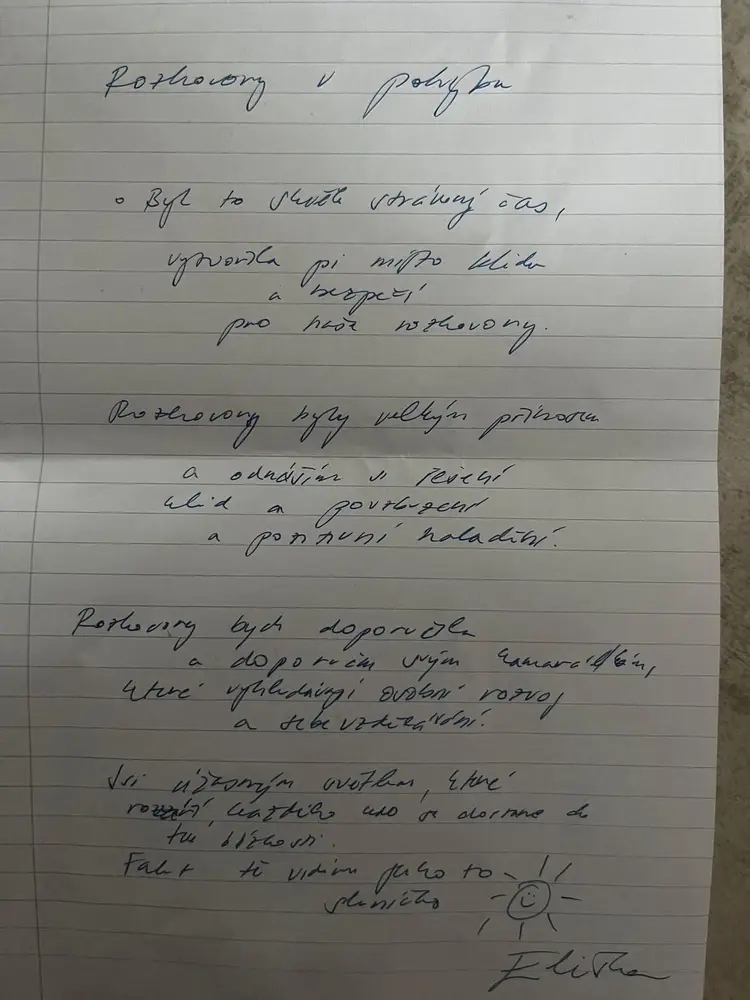 Rozhovory v pohybu
• Byl to skvěle strávený čas,
vytvořila jsi místo klidu
a bezpečí
pro naše rozhovory.
Rozhovory byly velkým přínosem
a odnáším si řešení
klid a povzbuzení
a pozitivní naladění.
Rozhovory bych doporučila
a doporučím svým kamarádkám,
které vyhledávají osobní rozvoj
a sebevzdělávání.
Jsi úžasným světlem, které
každého kdo se dostane do
tvé blízkosti.
Fakt tě vidím jako to
sluníčko
Eliška